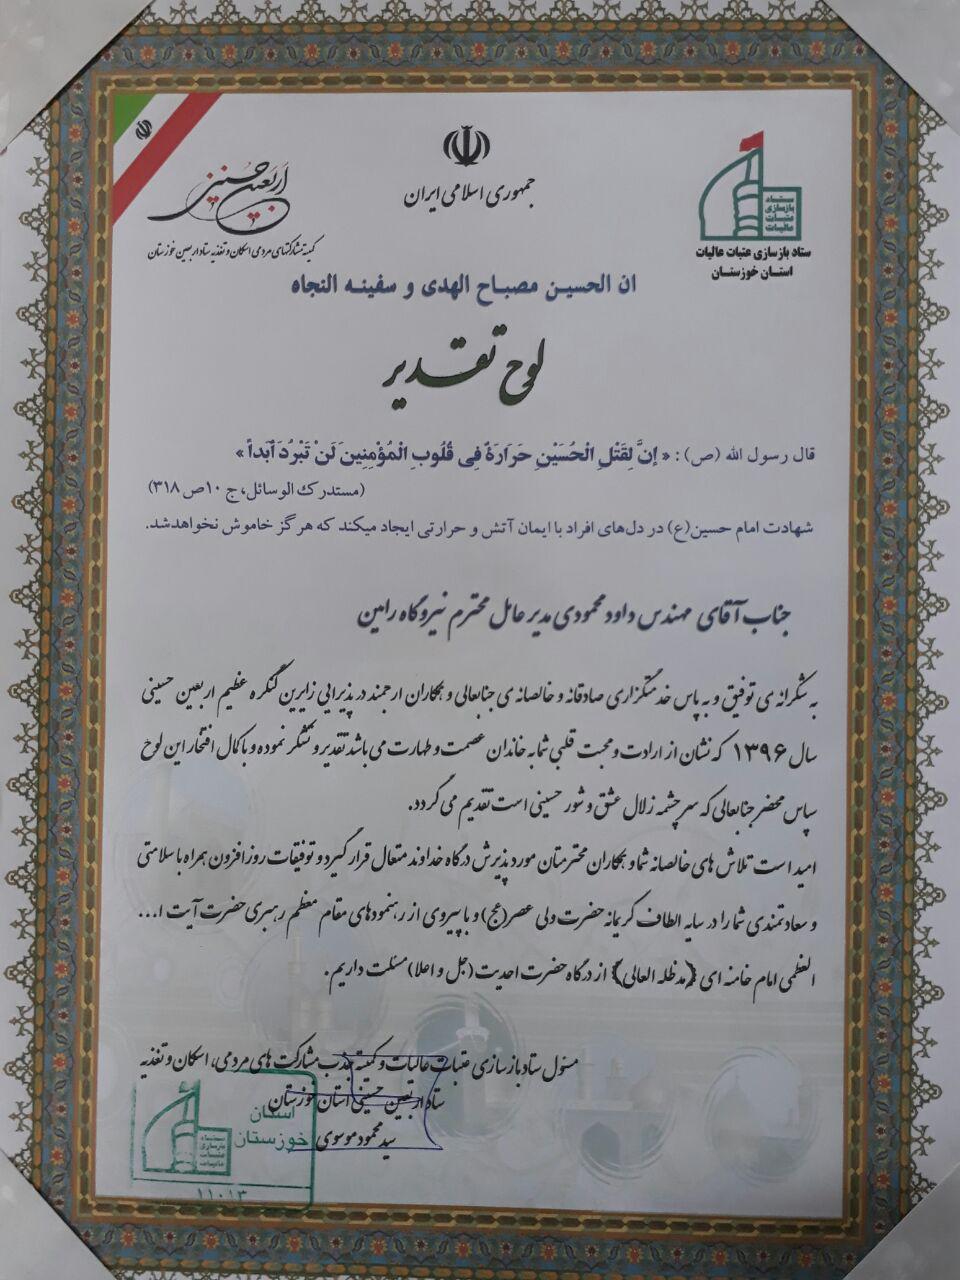 اربعین حسینی
کمیته مشارکتهای مردمی اسکان و تغذیه ستاد اربعین خوزستان
جمهوری اسلامی ایران
ستاد
بازسازی
عتبات
عالیات
ستاد بازسازی عتبات عالیات
استان خوزستان
ان الحسین مصباح الهدی و سفینه النجاه
لوح تقدیر
قال رسول الله (ص) : « إنَّ لِقَتْلِ الْحُسَیْنِ حَرَارَةً فِی قُلُوبِ الْمُؤْمِنِینَ لَنْ تَبْرُدَ اَبَداً »
(مستدرک الوسائل، ج ۱۰ص ۳۱۸)
شهادت امام حسین(ع) در دل‌های افراد با ایمان آتش و حرارتی ایجاد میکند که هرگز خاموش نخواهدشد.
جناب آقای مهندس داود محمودی مدیر عامل محترم نیروگاه رامین
به شکرانه ی توفیق و به پاس خدمتگزاری صادقانه و خالصانه ی جنابعالی و همکاران ارجمند در پذیرایی زایرین کنگره عظیم اربعین حسینی
سال ۱۳۹۶ که نشان از ارادت و محبت قلبی شما به خاندان عصمت و طهارت می باشد تقدیر و تشکر نموده و با کمال افتخار این لوح
سپاس محضر جنابعالی که سرچشمه زلال عشق و شور حسینی است تقدیم می گردد.
امید است تلاش های خالصانه شما و همکاران محترمتان مورد پذیرش درگاه خداوند متعال قرار گیرد و توفیقات روزافزون همراه با سلامتی
و سعادتمندی شما را در سایه الطاف کریمانه حضرت ولی عصر(عج) و با پیروی از رهنمودهای مقام معظم رهبری حضرت آیت ا...
العظمی امام خامنه ای {مدظله العالی} از درگاه حضرت احدیت (جل و اعلا) مسئلت داریم.
مسئول ستاد بازسازی عتبات عالیات و کمیته جذب مشارکت های مردمی، اسکان و تغذیه
ستاد اربعین حسینی استان خوزستان
سید محمود موسوی
ستاد
بازسازی
عتبات
عالیات
استان
خوزستان
۱۱۰۱۳